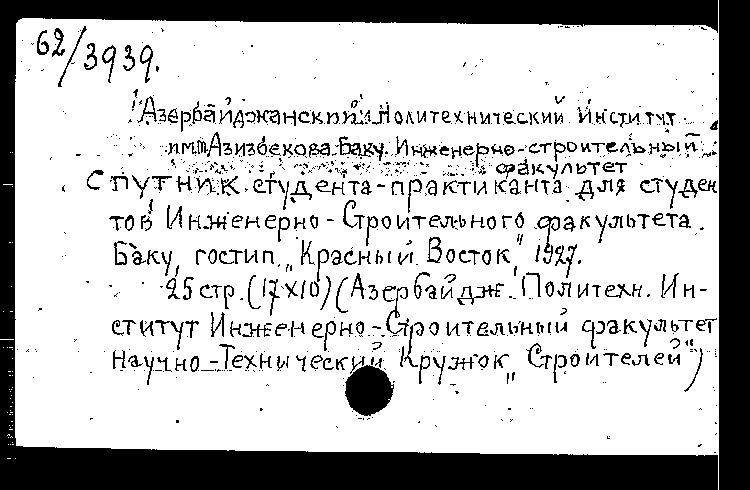 62/3939.
Азербайджанский Политехнический Институт
им. Азизбекова. Баку. Инженерно-строительный
факультет
Спутник студента-практиканта для студен
тов Инженерно-Строительного факультета.
Баку, гостип. „Красный Восток" 1927.
25 стр. (17х10) (Азербайдж. Политехн. Ин-
ститут Инженерно-Строительный факультет
Научно-Технический Кружок „Строителей")